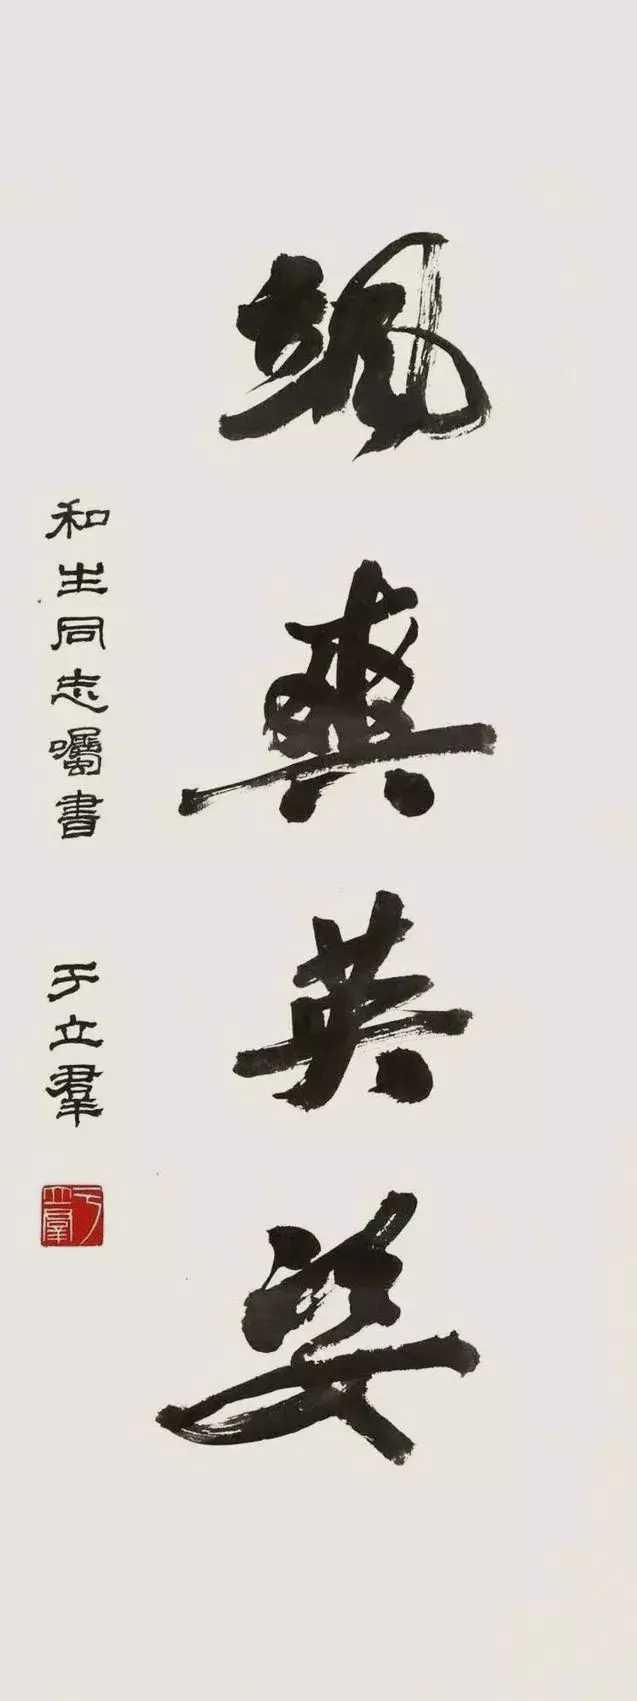 颯爽英姿
和生同志囑書 于立羣
于立羣